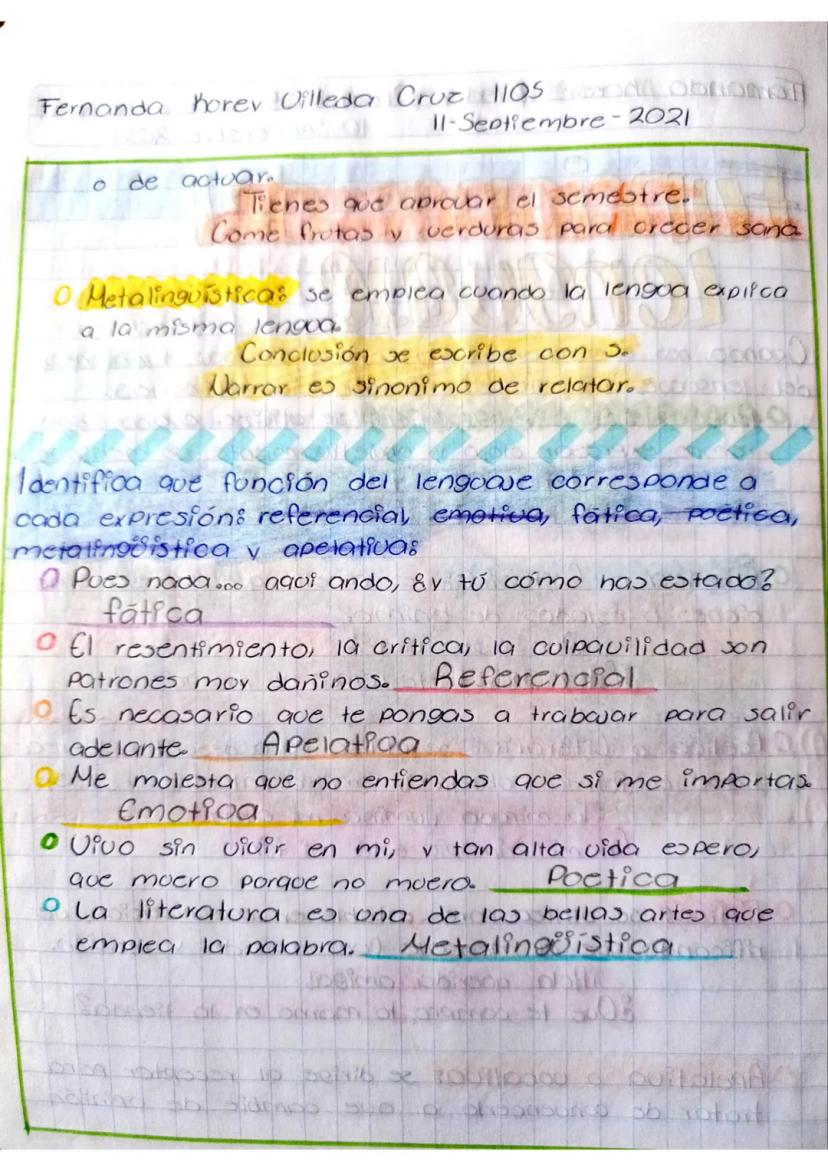 Fernanda Korev Villeda Cruz 1105
11-Septiembre-2021
o de actuar.
Tienes que aprovar el semestre.
Come frutas y verduras para crecer sana
Metalingüística: se emplea cuando la lengua explica
a la misma lengua.
Conclusión se escribe con s.
Narrar es sinonimo de relatar.
Identifica que función del lenguaje corresponde a
cada expresión: referencial, emotiva, fática, poética,
metalingüística y apelativa:
Pues nada... aquí ando, ¿y tú cómo has estado?
fática
El resentimiento, la crítica, la culpavilidad son
patrones muy dañinos. Referencial
Es necasario que te pongas a trabajar para salir
adelante. Apelativa
Me molesta que no entiendas que si me importas
Emotiva
Vivo sin vivir en mi, y tan alta vida espero,
que muero porque no muero. Poetica
La literatura es una de las bellas artes que
emplea la palabra. Metalingüística